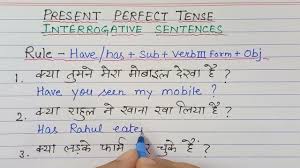 PRESENT PERFECT TENSE
INTERROGATIVE SENTENCES
Rule - Have/has + Sub + Verb III Form + Obj
1. क्या तुमने मेरा मोबाईल देखा है ?
Have you seen my mobile ?
2. क्या राहुल ने खाना खा लिया है ?
Has Rahul eate
3. क्या लड़के फार्म चुके हैं ?